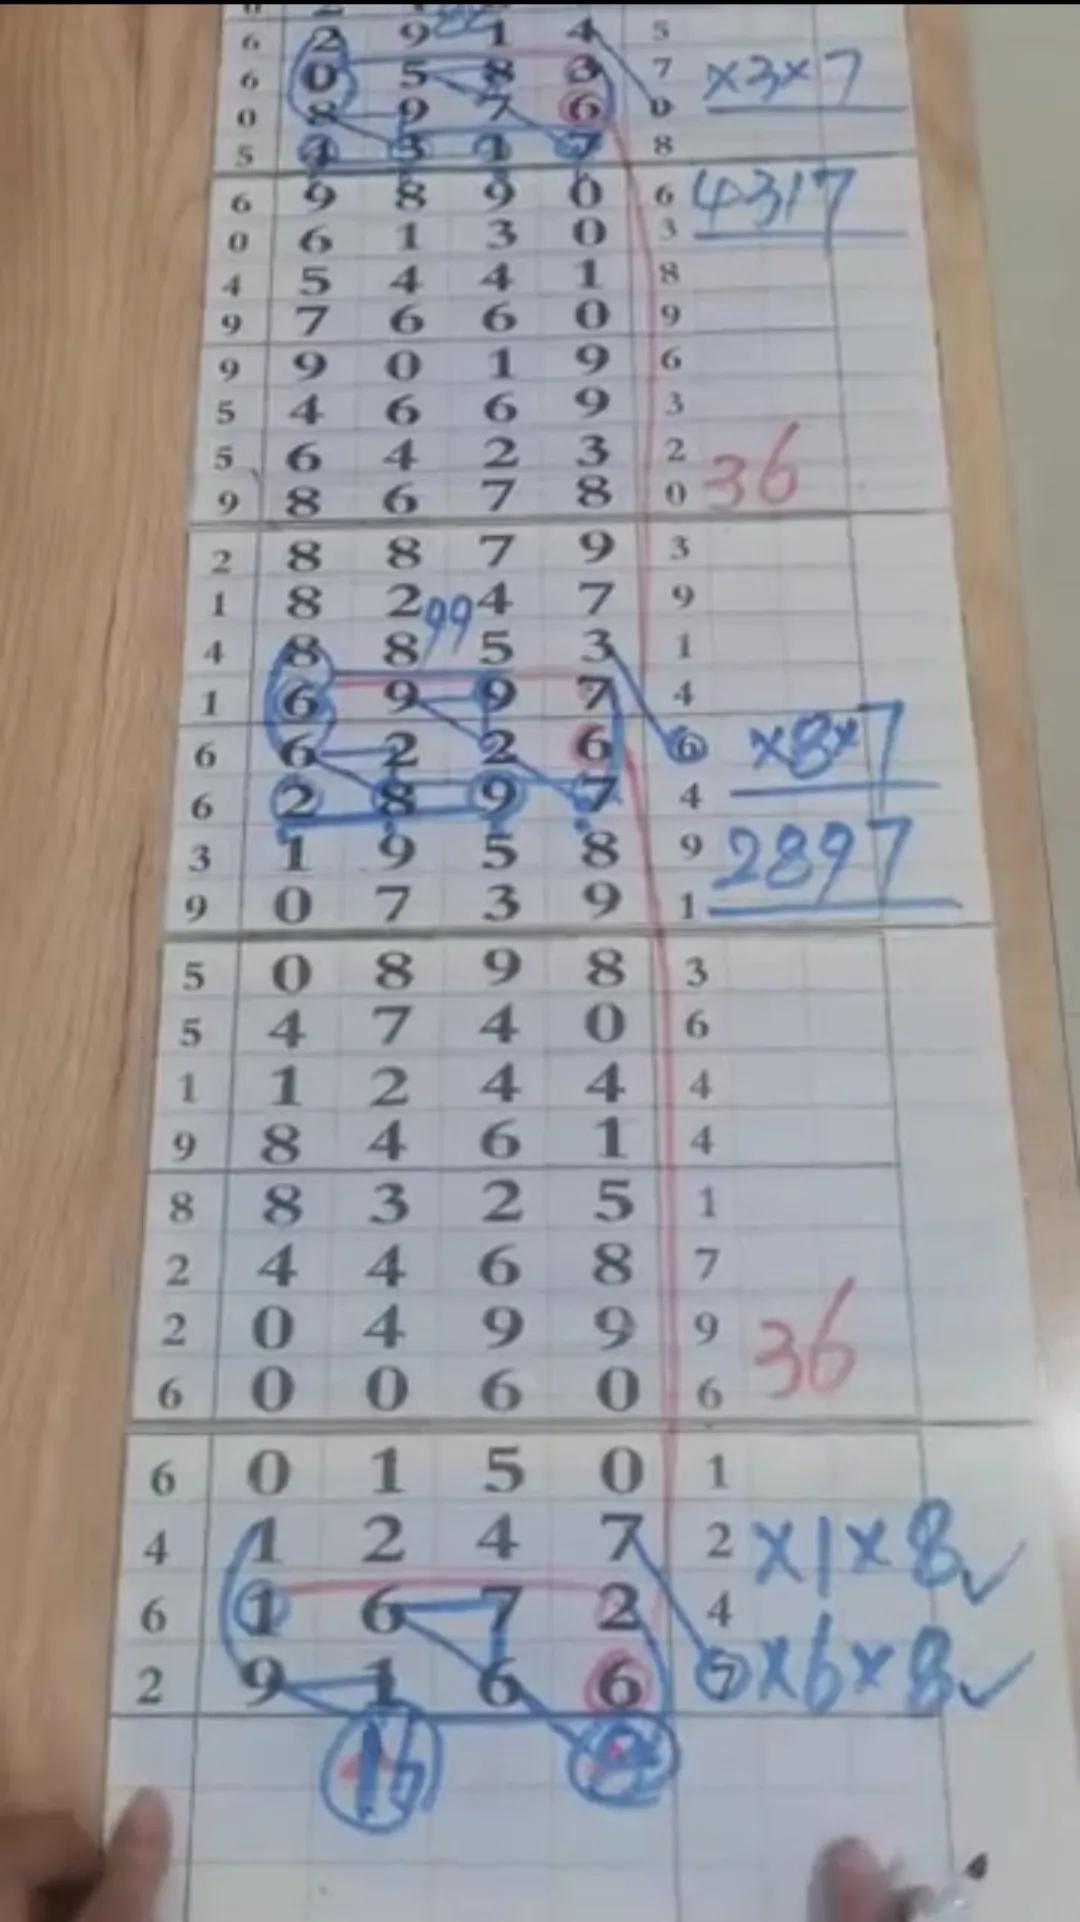 6 2 9 1 4 5
6 0 5 8 3 7 ×3×7
0 8 9 7 6 0
5 4 3 1 7 8
6 9 8 9 0 6 4317
0 6 1 3 0 3
4 5 4 4 1 8
9 7 6 6 0 9
9 9 0 1 9 6
5 4 6 6 9 3
5 6 4 2 3 2 36
9 8 6 7 8 0
2 8 8 7 9 3
1 8 2 4 7 9
99
4 8 8 5 3 1
1 6 9 9 7 4
6 6 2 2 6 6 ×8×7
6 2 8 9 7 4
3 1 9 5 8 9 2897
9 0 7 3 9 1
5 0 8 9 8 3
5 4 7 4 0 6
1 1 2 4 4 4
9 8 4 6 1 4
8 8 3 2 5 1
2 4 4 6 8 7
2 0 4 9 9 9 36
6 0 0 6 0 6
6 0 1 5 0 1
4 1 2 4 7 2 ×1×8✓
6 1 6 7 2 4
2 9 1 6 6 7 ×6×8✓